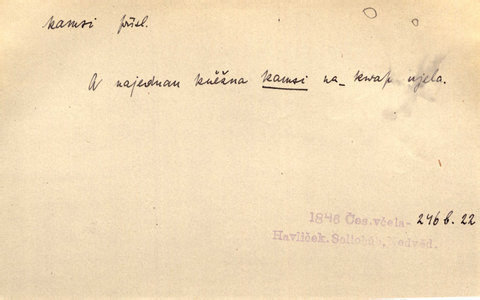 kamsi přísl.
A najednau kněžna kamsi na_ kwap ujela.
1846 Čes. včela- 246 b. 22
Havlíček. Medvěd.